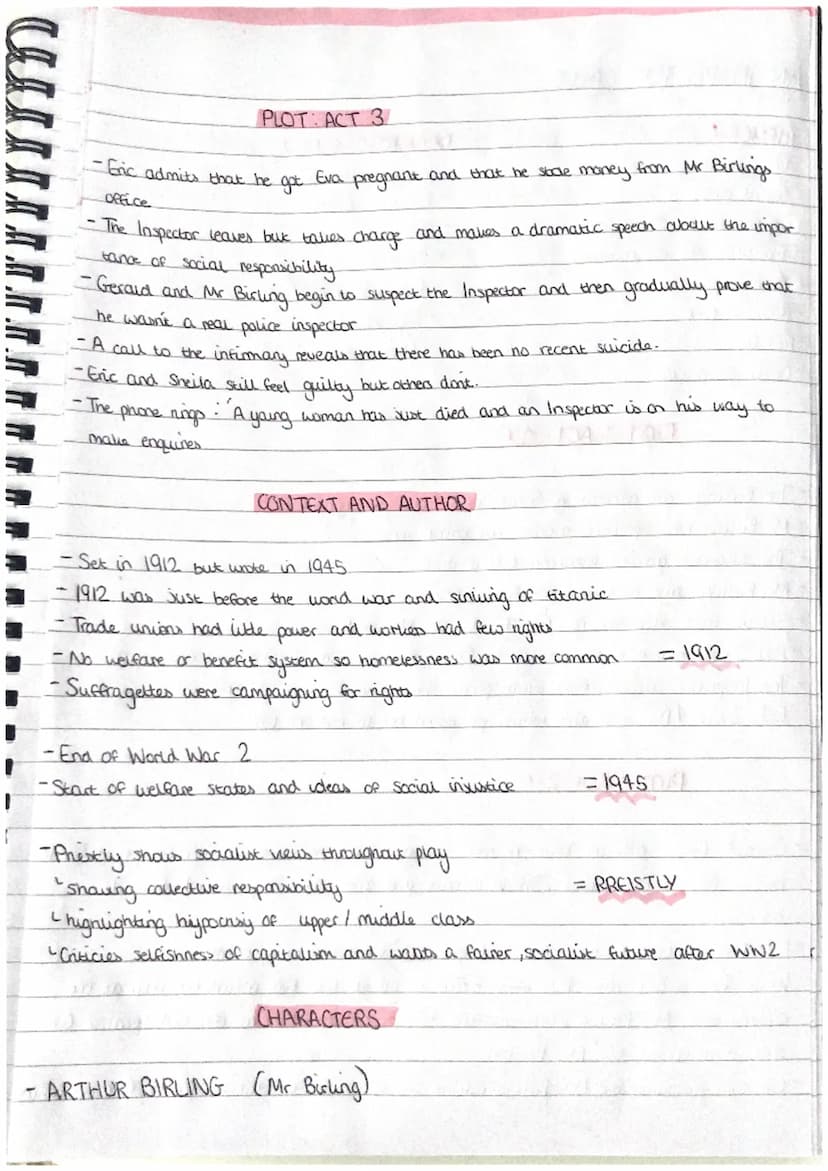 PLOT: ACT 3
- Eric admits that he got Eva pregnant and that he stole money from Mr Birlings
office
- The Inspector leaves but takes charge and makes a dramatic speech about the impor
tance of social responsibility
- Gerald and Mr Birling begin to suspect the Inspector and then gradually prove that
he wasn't a real police inspector
- A call to the infirmary reveals that there has been no recent suicide.
- Eric and Sheila still feel guilty but others don't.
- The phone rings: "A young woman has just died and an Inspector is on his way to
make enquires
CONTEXT AND AUTHOR
- Set in 1912 but wrote in 1945
- 1912 was just before the world war and sinking of titanic
- Trade unions had little power and workers had few rights
- No welfare or benefit system so homelessness was more common = 1912
- Suffragettes were campaigning for rights
- End of World War 2
- Start of welfare states and ideas of social injustice = 1945
- Priestly shows socialist veiws throughout play
↳ sharing collective responsibility = PREISTLY
↳ highlighting hypocrisy of upper / middle class
↳ Criticies selfishness of capitalism and wants a fairer, socialist future after WW2
CHARACTERS
- ARTHUR BIRLING (Mr Birling)